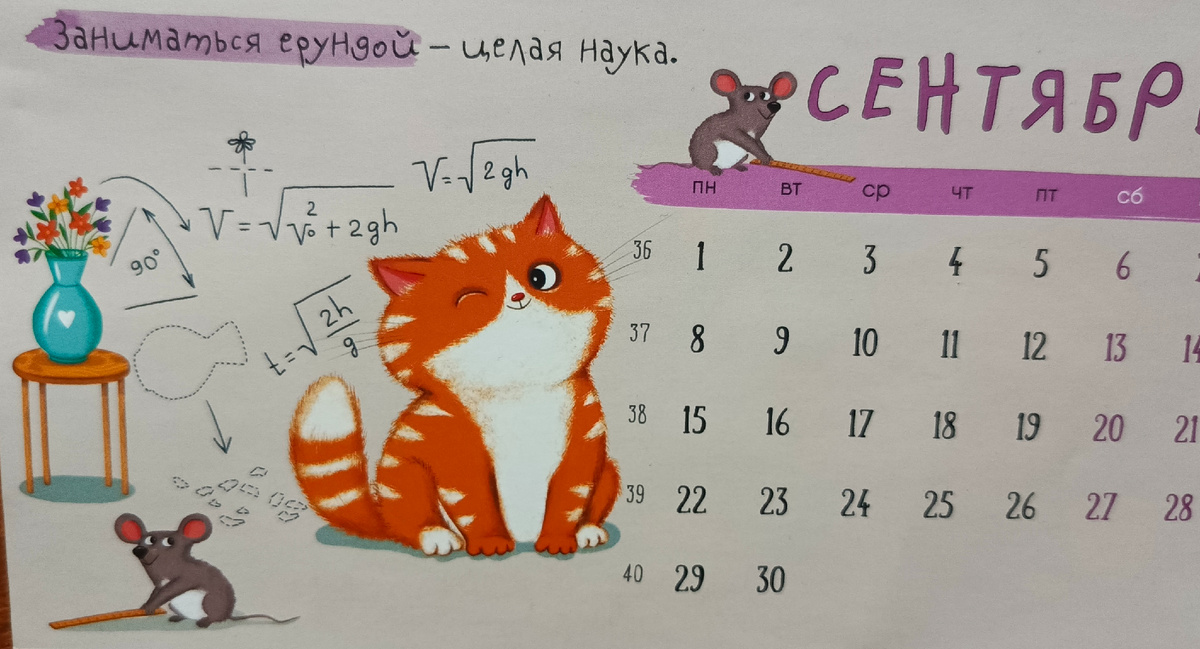 Заниматься ерундой – целая наука.
СЕНТЯБР
V=√2gh
V=√V₀²+2gh
90°
t=√2h/g
пн вт ср чт пт сб
36 1 2 3 4 5 6
37 8 9 10 11 12 13 14
38 15 16 17 18 19 20 21
39 22 23 24 25 26 27 28
40 29 30